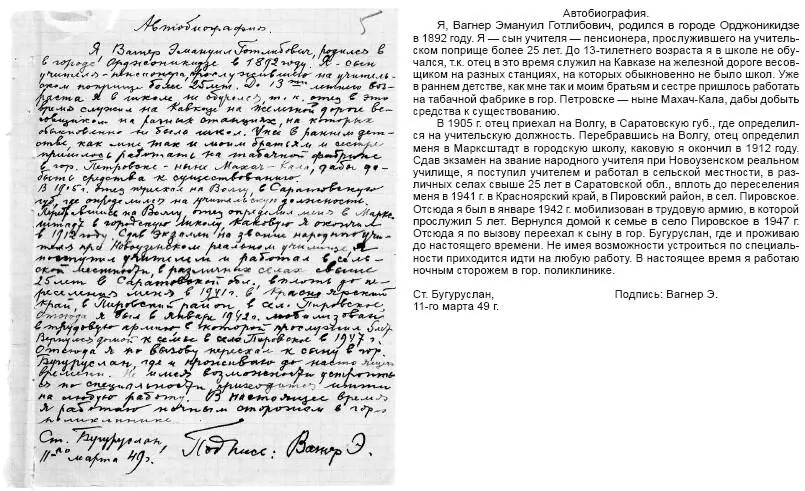 Автобиография. 5
Я Вагнер Эмануил Готлибович, родился в
в городе Орджоникидзе в 1892 году. Я - сын
учителя - пенсионера, прослужившего на учитель-
ском поприще более 25 лет. До 13ти летнего возр-
аста я в школе не обучался, т. к. отец в это
время служил на Кавказе на железной дороге ве-
совщиком на разных станциях, на которых
обыкновенно не было школ. Уже в раннем дет-
стве, как мне так и моим братьям и сестре
пришлось работать на табачной фабрике
в гор. Петровске - ныне Махач-Кала, дабы до-
быть средства к существованию.
В 1905 г. отец приехал на Волгу, в Саратовскую
губ., где определился на учительскую должность.
Перебравшись на Волгу, отец определил меня в Марк-
сштадт в городскую школу, каковую я окончил
в 1912 году. Сдав экзамен на звание народного учи-
теля при Новоузенском реальном училище, я
поступил учителем и работал в сель-
ской местности, в различных селах свыше
25 лет в Саратовской обл., вплоть до пе-
реселения меня в 1941 г. в Красноярский
край, в Пировский район в сел. Пировское.
Отсюда я был в январе 1942 г. мобилизован
в трудовую армию в которой прослужил 5 лет
Вернулся домой к семье в село Пировское в 1947 г.
Отсюда я по вызову переехал к сыну в гор.
Бугуруслан, где и проживаю до настоящего
времени. Не имея возможности устроить-
ся по специальности, приходится итти
на любую работу. В настоящее время
я работаю ночным сторожом в гор-
поликлинике.
Ст. Бугуруслан,
11-го марта 49 г. Подпись: Вагнер Э.
Автобиография.
Я, Вагнер Эмануил Готлибович, родился в городе Орджоникидзе
в 1892 году. Я — сын учителя — пенсионера, прослужившего на учитель-
ском поприще более 25 лет. До 13-тилетнего возраста я в школе не обу-
чался, т.к. отец в это время служил на Кавказе на железной дороге весов-
щиком на разных станциях, на которых обыкновенно не было школ. Уже
в раннем детстве, как мне так и моим братьям и сестре пришлось работать
на табачной фабрике в гор. Петровске — ныне Махач-Кала, дабы добыть
средства к существованию.
В 1905 г. отец приехал на Волгу, в Саратовскую губ., где определил-
ся на учительскую должность. Перебравшись на Волгу, отец определил
меня в Марксштадт в городскую школу, каковую я окончил в 1912 году.
Сдав экзамен на звание народного учителя при Новоузенском реальном
училище, я поступил учителем и работал в сельской местности, в раз-
личных селах свыше 25 лет в Саратовской обл., вплоть до переселения
меня в 1941 г. в Красноярский край, в Пировский район, в сел. Пировское.
Отсюда я был в январе 1942 г. мобилизован в трудовую армию, в которой
прослужил 5 лет. Вернулся домой к семье в село Пировское в 1947 г.
Отсюда я по вызову переехал к сыну в гор. Бугуруслан, где и проживаю
до настоящего времени. Не имея возможности устроиться по специаль-
ности приходится идти на любую работу. В настоящее время я работаю
ночным сторожем в гор. поликлинике.
Ст. Бугуруслан, Подпись: Вагнер Э.
11-го марта 49 г.